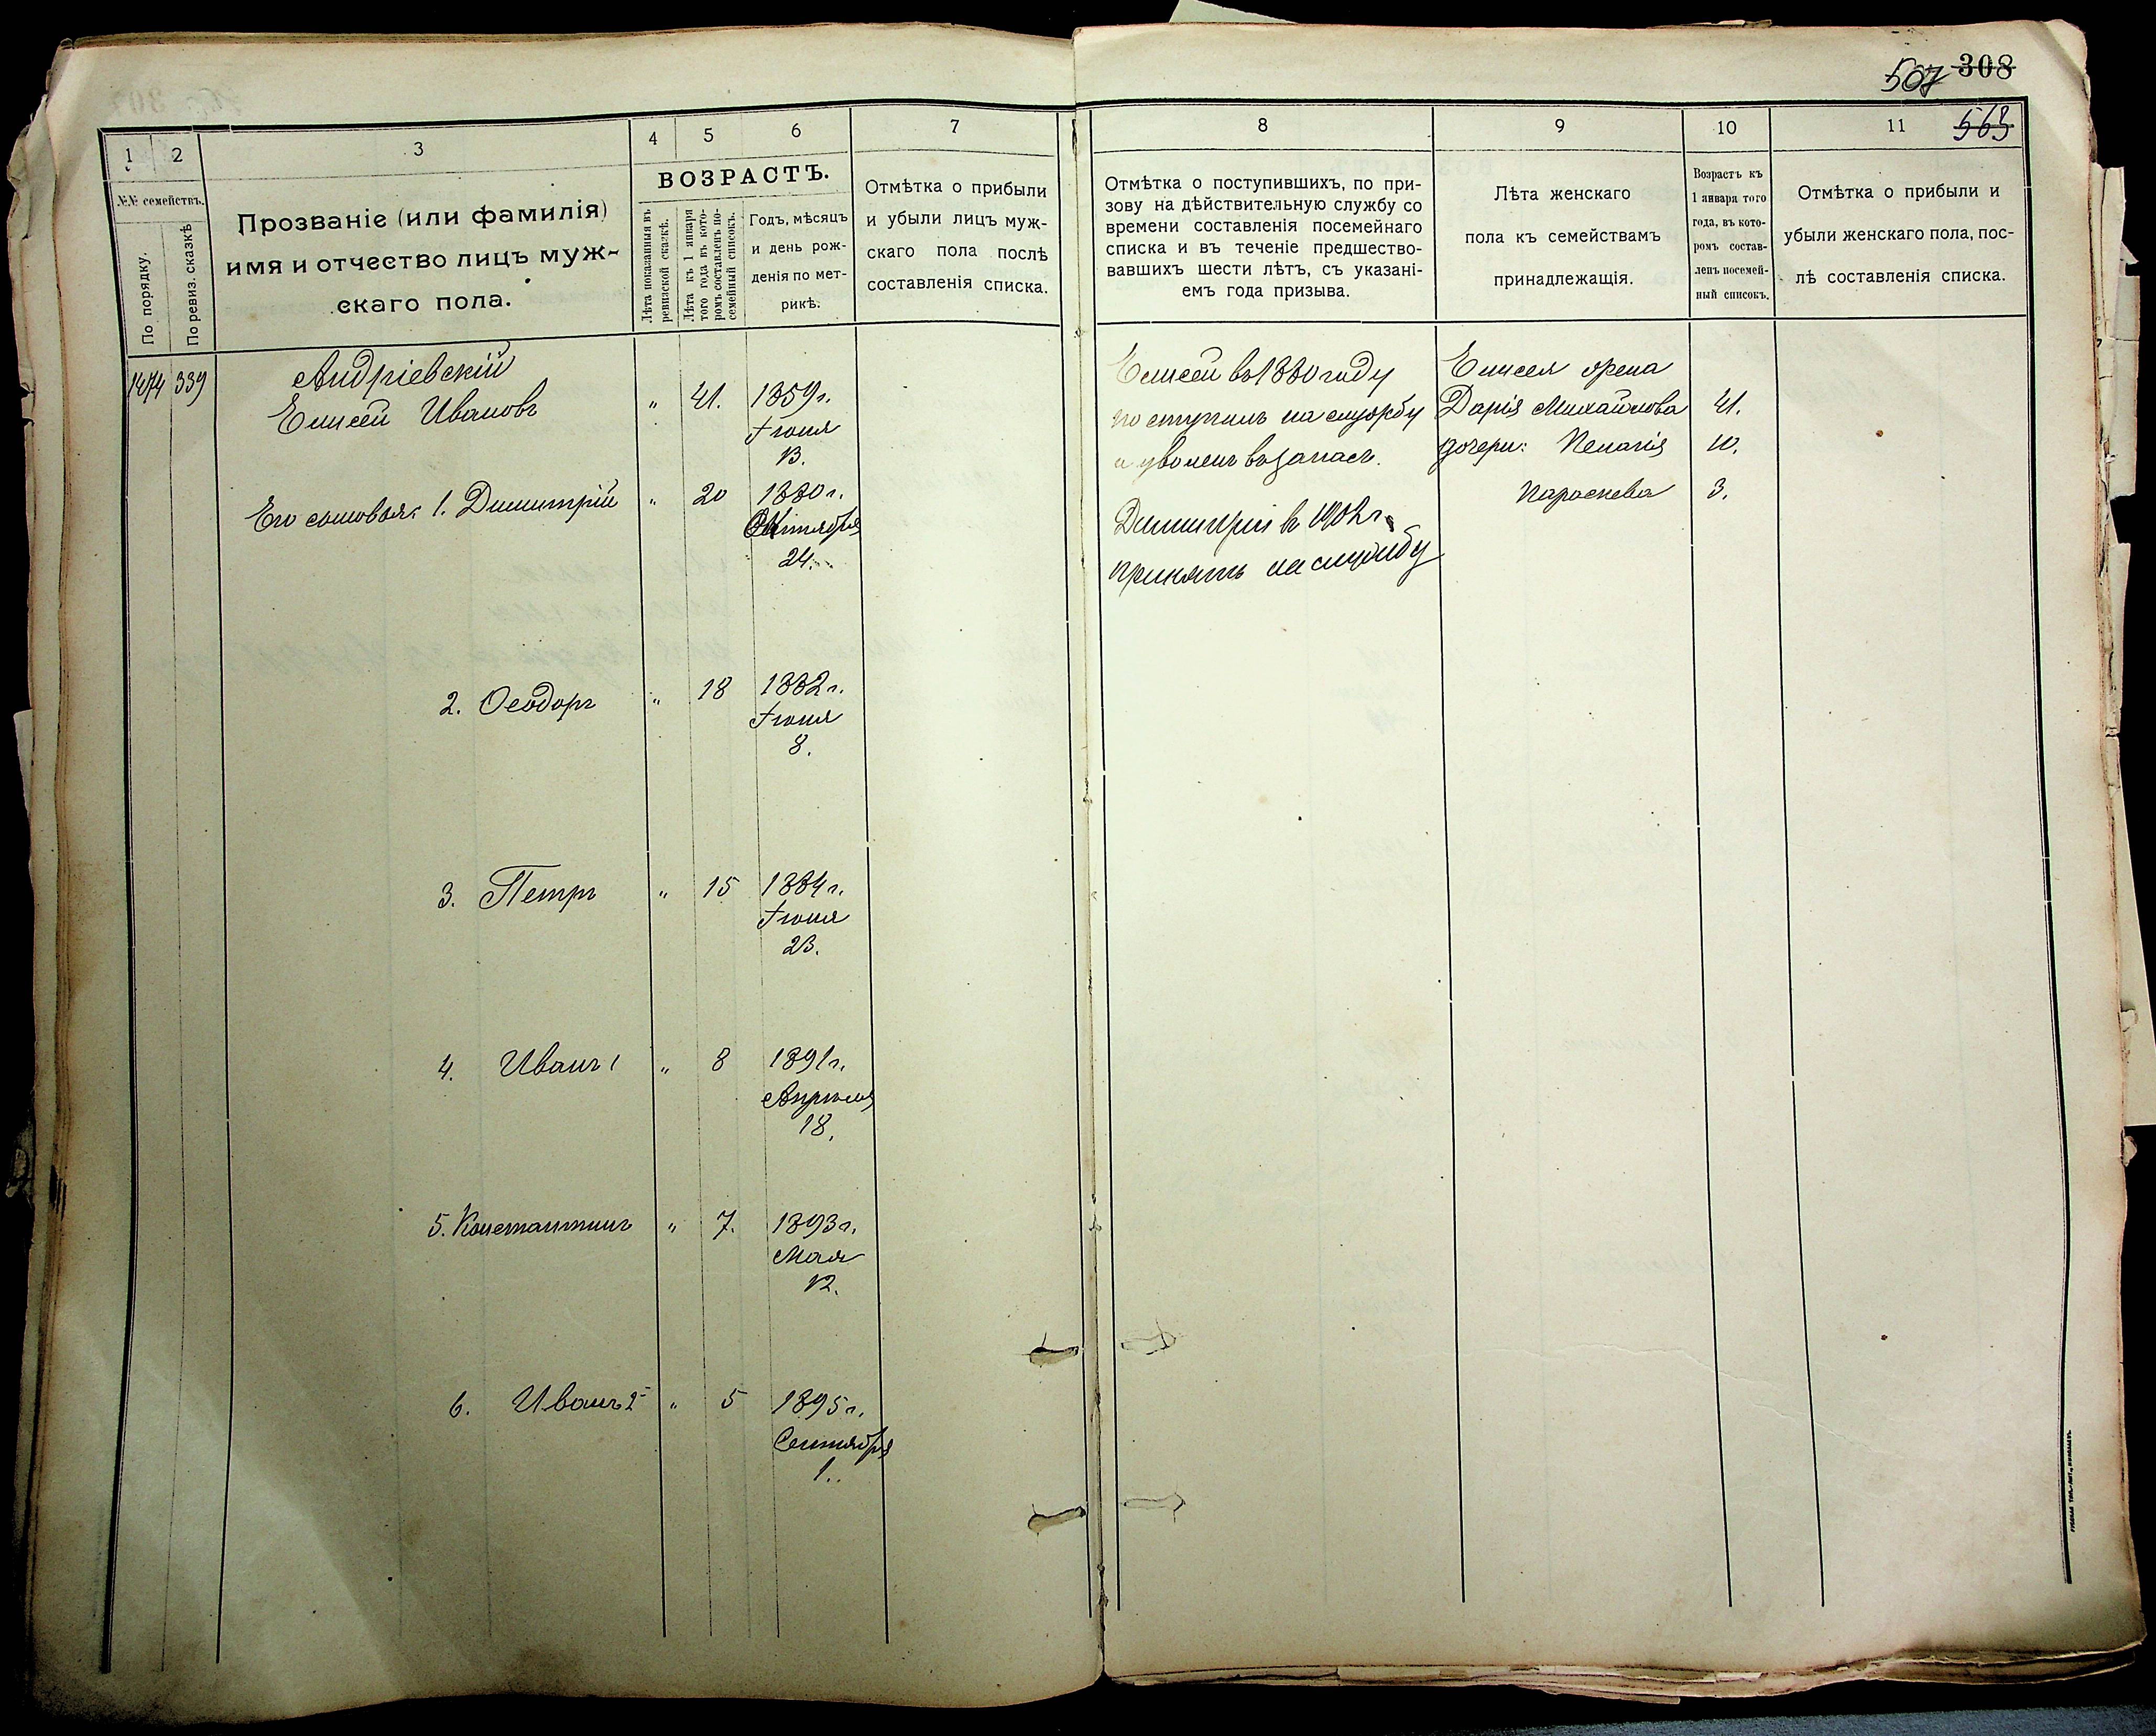 507 308
563
1
2
3
4
5
6
7
8
9
10
11
№№ семействъ.
По порядку.
По ревиз. сказкѣ
Прозваніе (или фамилія)
имя и отчество лицъ муж-
скаго пола.
ВОЗРАСТЪ.
Лѣта показанныя въ
ревизской сказкѣ.
Лѣта къ 1 января
того года въ кото-
ромъ составленъ по-
семейный списокъ.
Годъ, мѣсяцъ
и день рож-
денія по мет-
рикѣ.
Отмѣтка о прибыли
и убыли лицъ муж-
скаго пола послѣ
составленія списка.
Отмѣтка о поступившихъ, по при-
зову на дѣйствительную службу со
времени составленія посемейнаго
списка и въ теченіе предшество-
вавшихъ шести лѣтъ, съ указані-
емъ года призыва.
Лѣта женскаго
пола къ семействамъ
принадлежащія.
Возрастъ къ
1 января того
года, въ кото-
ромъ состав-
ленъ посемей-
ный списокъ.
Отмѣтка о прибыли и
убыли женскаго пола, пос-
лѣ составленія списка.
1474 339 Андріевскій
Елисей Ивановъ " 41. 1859 г.
Іюня
13.
Его сыновья: 1. Димитрій " 20 1880 г.
Октября
24.
2. Ѳеодоръ " 18 1882 г.
Іюня
8.
3. Петръ " 15 1884 г.
Іюня
23.
4. Иванъ 1 " 8 1891 г.
Апрѣля
18.
5. Константинъ " 7. 1893 г.
Мая
12.
6. Иванъ 2 " 5 1895 г.
Сентября
1.
Елисей въ 1880 году
поступилъ на службу
и уволенъ въ запасъ.
Димитрій въ 1902 г.
принятъ на службу
Елисея жена
Дарія Михайлова 41.
дочери: Пелагія 10.
Параскева 3.